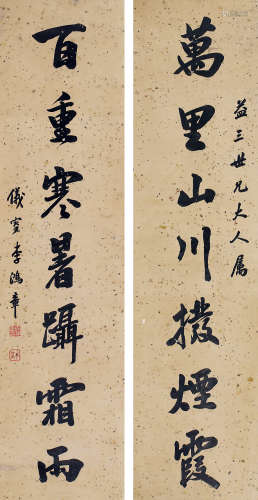 益三世兄大人屬
萬里山川撥煙霞
百重寒暑躡霜雨
儀叟李鴻章